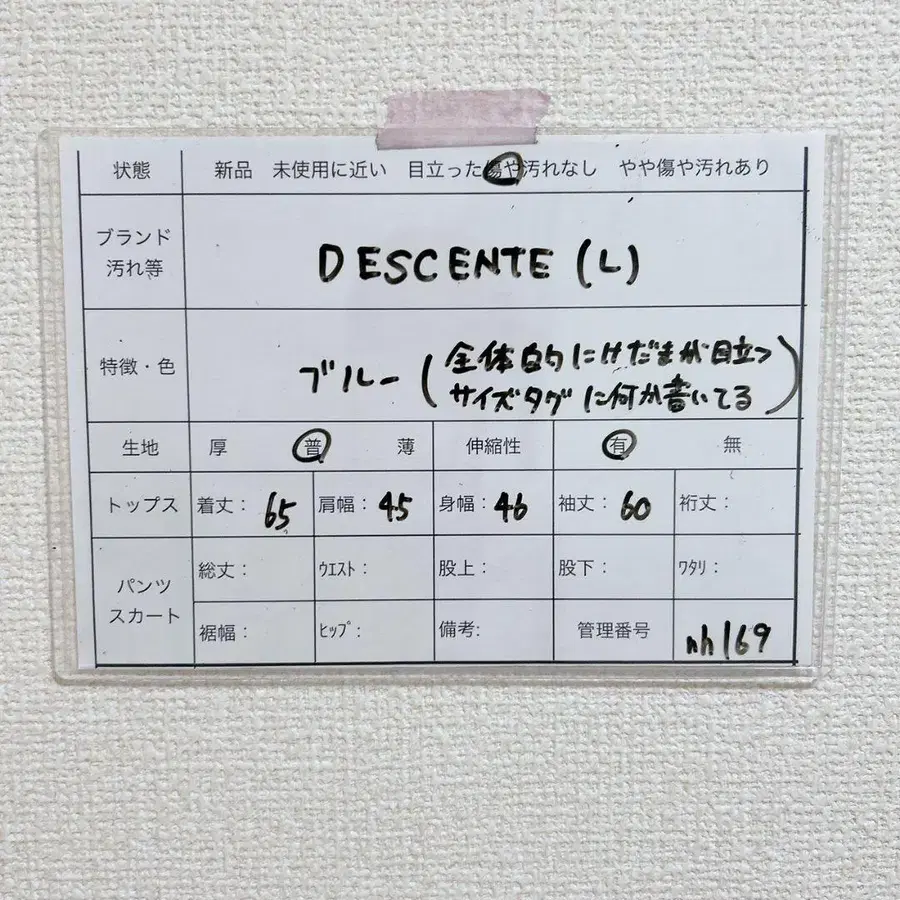 状態 新品 未使用に近い 目立った傷や汚れなし やや傷や汚れあり
ブランド
汚れ等
DESCENTE (L)
特徴・色
ブルー(全体的にけだまが目立つ
サイズタグに何か書いてる)
生地 厚 普 薄 伸縮性 有 無
トップス 着丈: 65 肩幅: 45 身幅: 46 袖丈: 60 裄丈:
パンツ
スカート
総丈: ウエスト: 股上: 股下: ワタリ:
裾幅: ヒップ: 備考: 管理番号 nh169